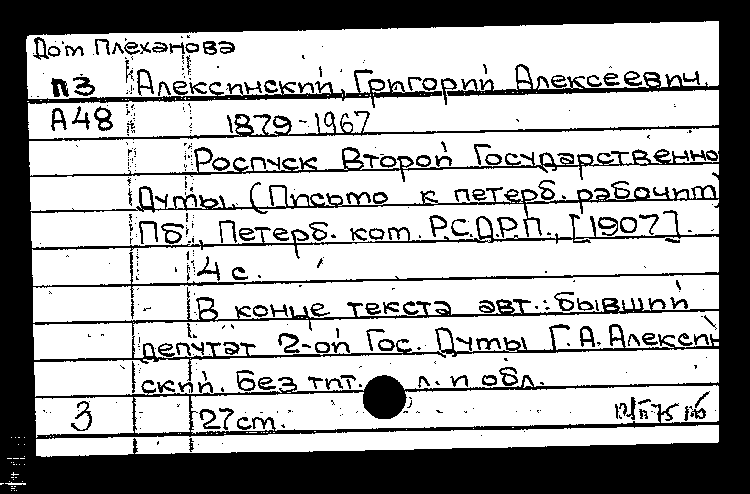 Дом Плеханова
п3 Алексинский, Григорий Алексеевич.
А48 1879-1967
Роспуск Второй Государственно
Думы. (Письмо к петерб. рабочим)
Пб., Петерб. ком. Р.С.Д.Р.П., [1907].
4 с.
В конце текста авт.: бывший
депутат 2-ой Гос. Думы Г.А. Алексин
ский. Без тит. л. и обл.
3 27см.